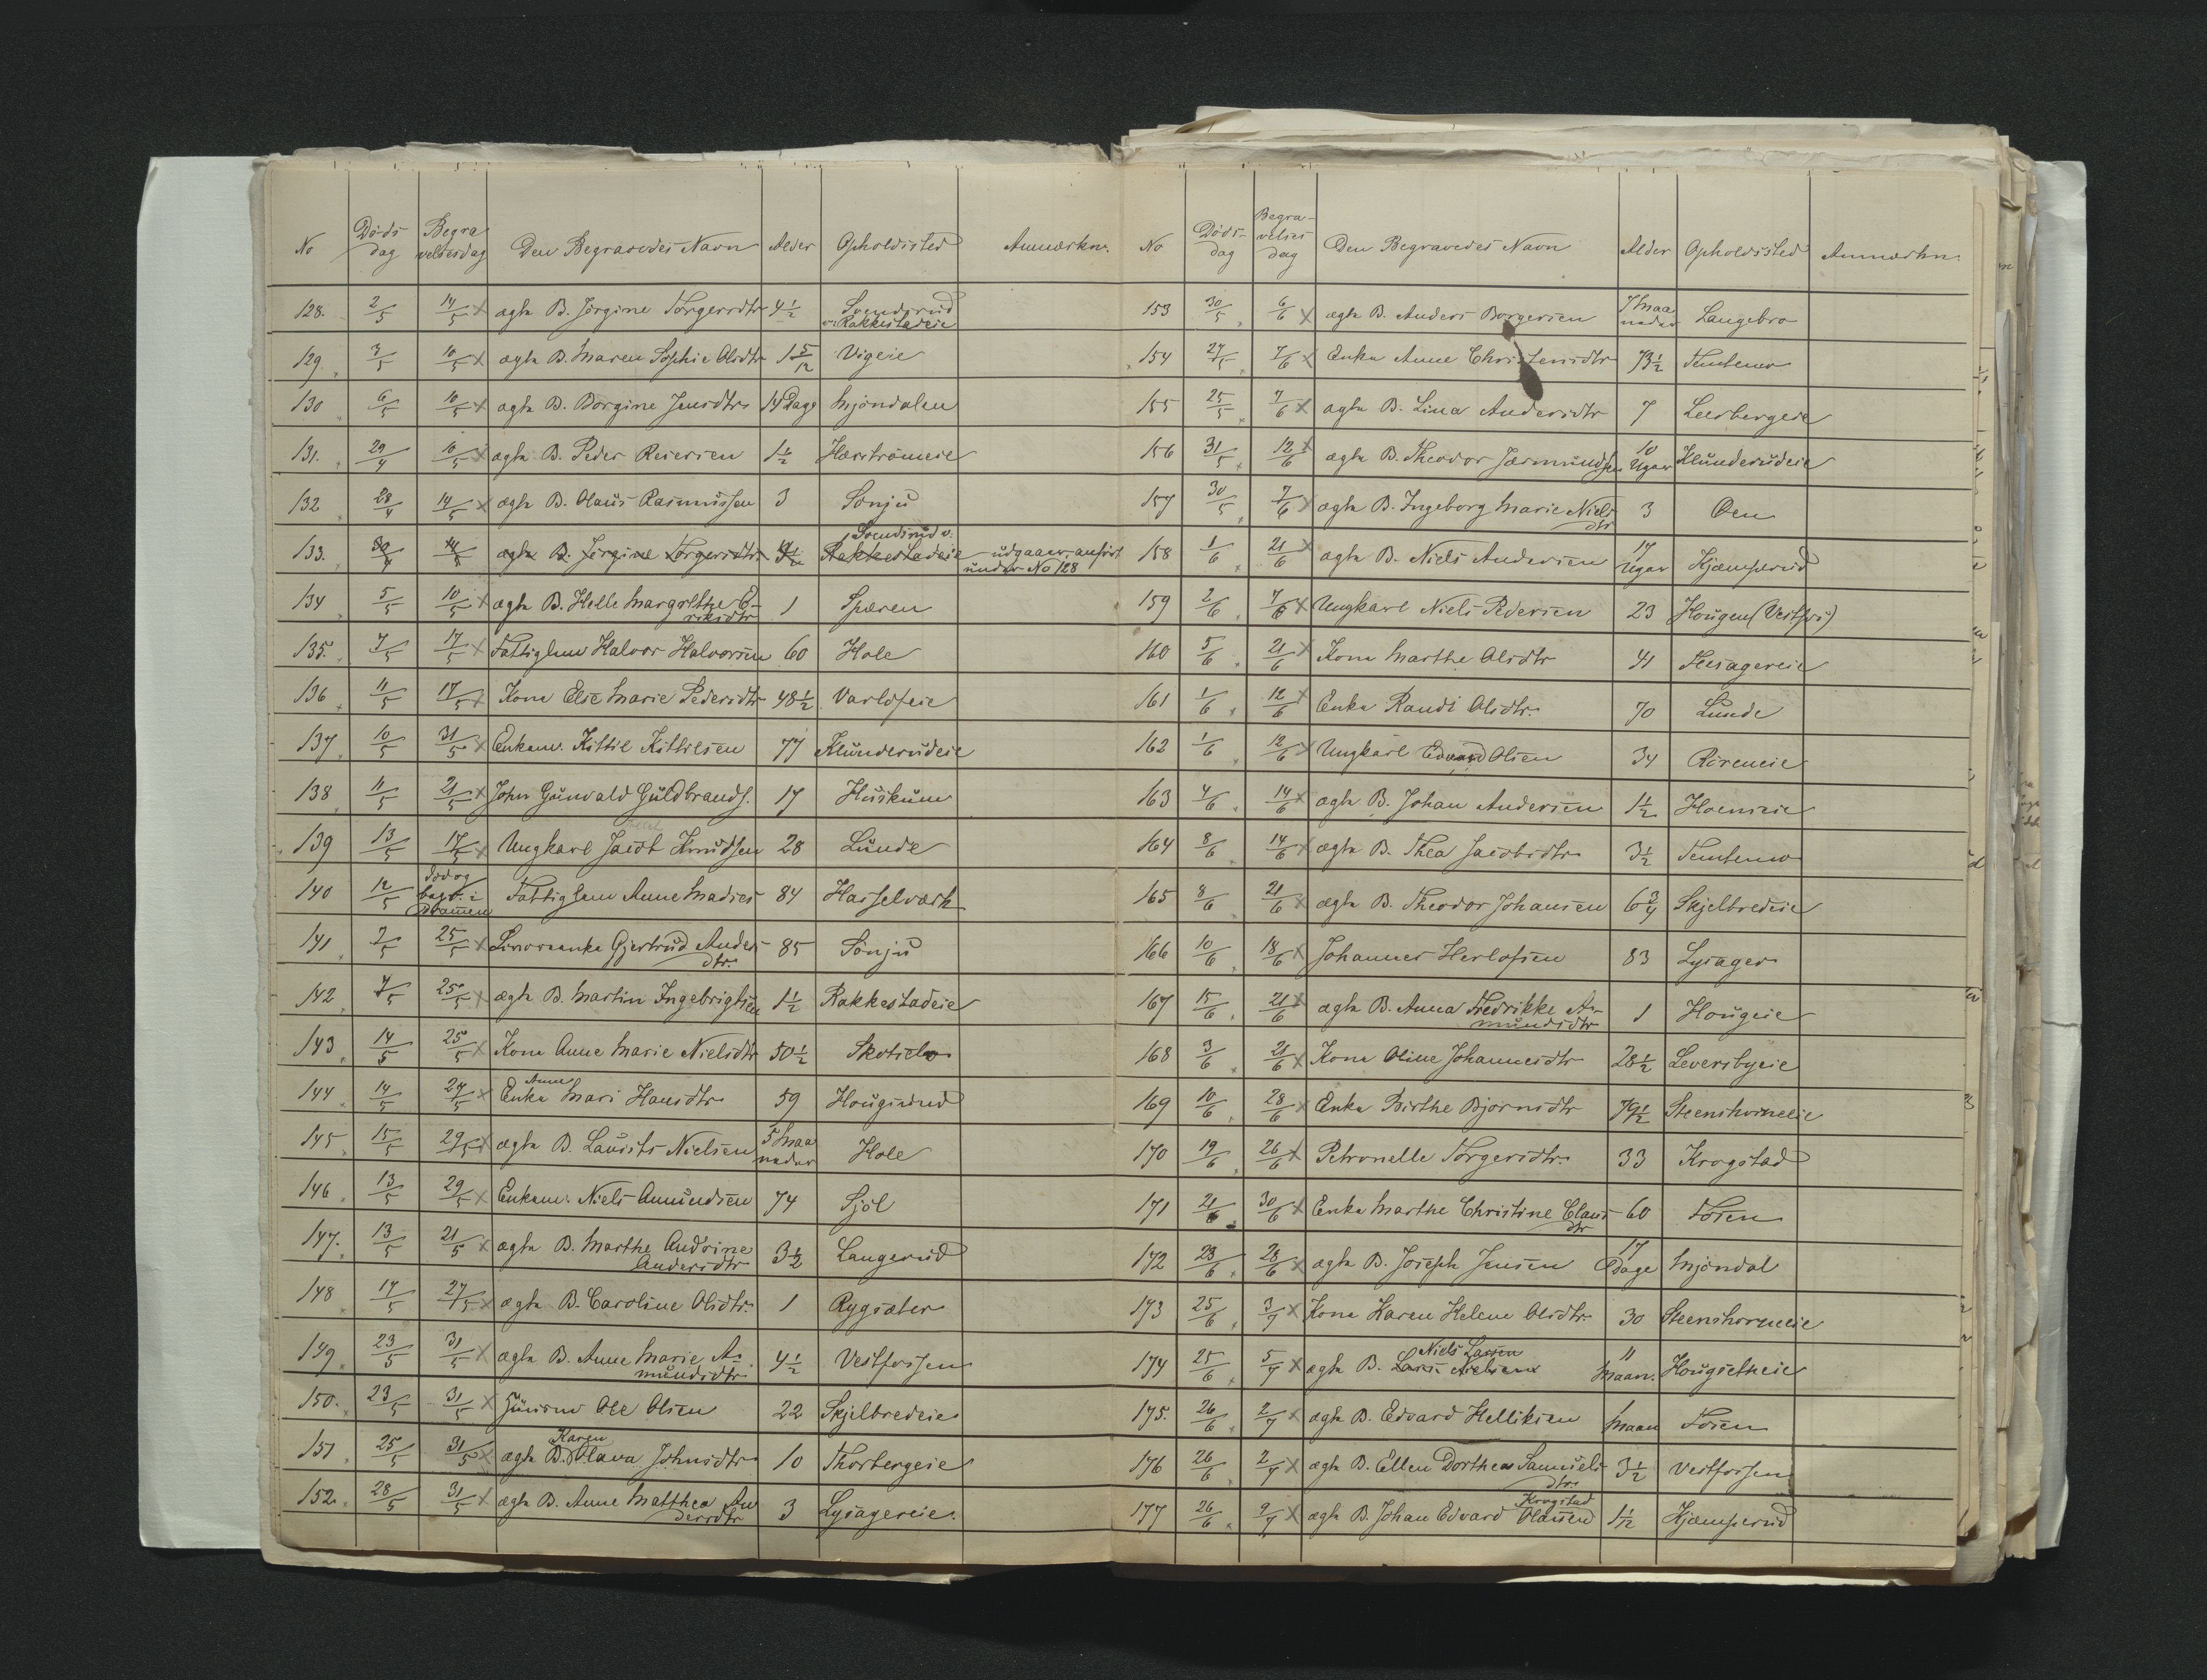 No Döds dag Begra velsesdag Den Begravedes Navn Alder Opholdssted Anmærkn.
128. 2/5 14/5 x ægte B. Jörgine Torgersdtr 4 1/2 Svendsrud v. Rakkestadeie
129. 3/5 10/5 x ægte B. Maren Sophie Olsdtr 1 5/12 Vigeie
130 6/5 10/5 x ægte B. Borgine Jensdtr 14 Dage Mjöndalen
131. 29/4 10/5 x ægte B. Peder Reiersen 1 1/2 Horströmeie
132 28/4 14/5 x ægte B. Olaus Rasmussen 3 Sönju
133. 30/4 14/5 ægte B. Jörgine Torgersdtr 4 1/2 Svendsrud v. Rakkestadeie udgaaer, anfört under No 128
134 5/5 10/5 x ægte B. Helle Margrethe E- riksdtr 1 Spæren
135. 7/5 17/5 x Fattiglem Halvor Halvorsen 60 Hole
136 11/5 17/5 x Kone Else Marie Pedersdtr 48 1/2 Varlofeie
137 10/5 31/5 x Enkem. Kittil Kittilsen 77 Klunderudeie
138 11/5 21/5 x John Gunvald Guldbrands. 17 Huskum
139 13/5 17/5 x Ungkarl Jacob Knudsen 28 Lunde
140 12/5 död og begr. i Dramen Fattiglem Anne Madses 84 Hasselværk
141 2/5 25/5 x Gjertrud Anders- dtr. 85 Sönju
142 7/5 25/5 x ægte B. Martin Ingebrigtsen 1 1/2 Rakkestadeie
143 14/5 25/5 x Kone Anne Marie Nielsdtr 50 1/2 Skotselv
144 14/5 27/5 x Enke Anne Mari Hansdtr 59 Hougsrud
145 15/5 29/5 x ægte B. Laurits Nielsen 5 Maa neder Hole
146 13/5 29/5 x Enkem. Niels Amundsen 74 Sjöl
147. 13/5 21/5 x ægte B. Marthe Andrine Andersdtr 3 1/2 Langerud
148 17/5 27/5 x ægte B. Caroline Olsdtr. 1 Rygsæter
149 23/5 31/5 x ægte B. Anne Marie A- mundsdtr. 4 1/2 Vestfossen
150. 23/5 31/5 x Ole Olsen 22 Skjelbredeie
151 25/5 31/5 x ægte B. Karen Olava Johnsdtr 10 Thorbergeie
152. 28/5 31/5 x ægte B. Anne Matthea An dersdtr 3 Lysagereie.
No Döds- dag Begra- velses dag Den Begravedes Navn Alder Opholdssted Anmærkn.
153 30/5 6/6 x ægte B. Anders Borgersen 7 Maa neder Langebro
154 27/5 7/6 x Enke Anne Christensdtr 73 1/2 Temtemo
155 25/5 7/6 x ægte B. Lina Andersdtr 7 Leerbergeie
156 31/5 12/6 x ægte B. Theodor Jermundsen 10 Uger Klunderudeie
157 30/5 7/6 x ægte B. Ingeborg Marie Niels- dtr 3 Oen
158 1/6 21/6 x ægte B. Niels Andersen 17 Uger Kjemperud
159 2/6 7/6 x Ungkarl Niels Pedersen 23 Hougen (Vestfos)
160 5/6 21/6 x Kone Marthe Olsdtr 41 Leesagereie
161 1/6 12/6 x Enke Randi Olsdtr. 70 Lunde
162 1/6 12/6 x Ungkarl Edvard Olsen 34 Röreneie
163 4/6 14/6 x ægte B. Johan Andersen 1 1/2 Hoenseie
164 8/6 14/6 x ægte B. Thea Jacobsdtr 3 1/2 Temtemo
165 8/6 21/6 x ægte B. Theodor Johansen 6 3/4 Skjelbredeie
166 10/6 18/6 x Johannes Herlofsen 83 Lysager
167 15/6 21/6 x ægte B. Anna Fredrikke A- mundsdtr 1 Hougeie
168 3/6 21/6 x Kone Oline Johannesdtr 28 1/2 Leversbyeie
169 10/6 28/6 x Enke Birthe Bjornsdtr 79 1/2 Steenshorneeie
170 19/6 26/6 x Petronelle Torgersdtr. 33 Krogstad
171 21/6 30/6 x Enke Marthe Christine Claus- dtr 60 Foسen
172 23/6 28/6 x ægte B. Joseph Jensen 17 Dage Mjöndal
173 25/6 3/7 x Kone Karen Helene Olsdtr. 30 Steenshorneeie
174 25/6 5/7 x ægte B. Lars Nielsen Niels Larsen 11 Maan. Hougsetheie
175. 26/6 2/7 x ægte B. Edvard Helliksen 1 Maan
176 26/6 2/7 x ægte B. Ellen Dorthea Samuels- dtr. 3 1/2 Vestfossen
177 26/6 9/7 x ægte B. Johan Edvard Olausen Krogstad 1 1/12 Kjemperud